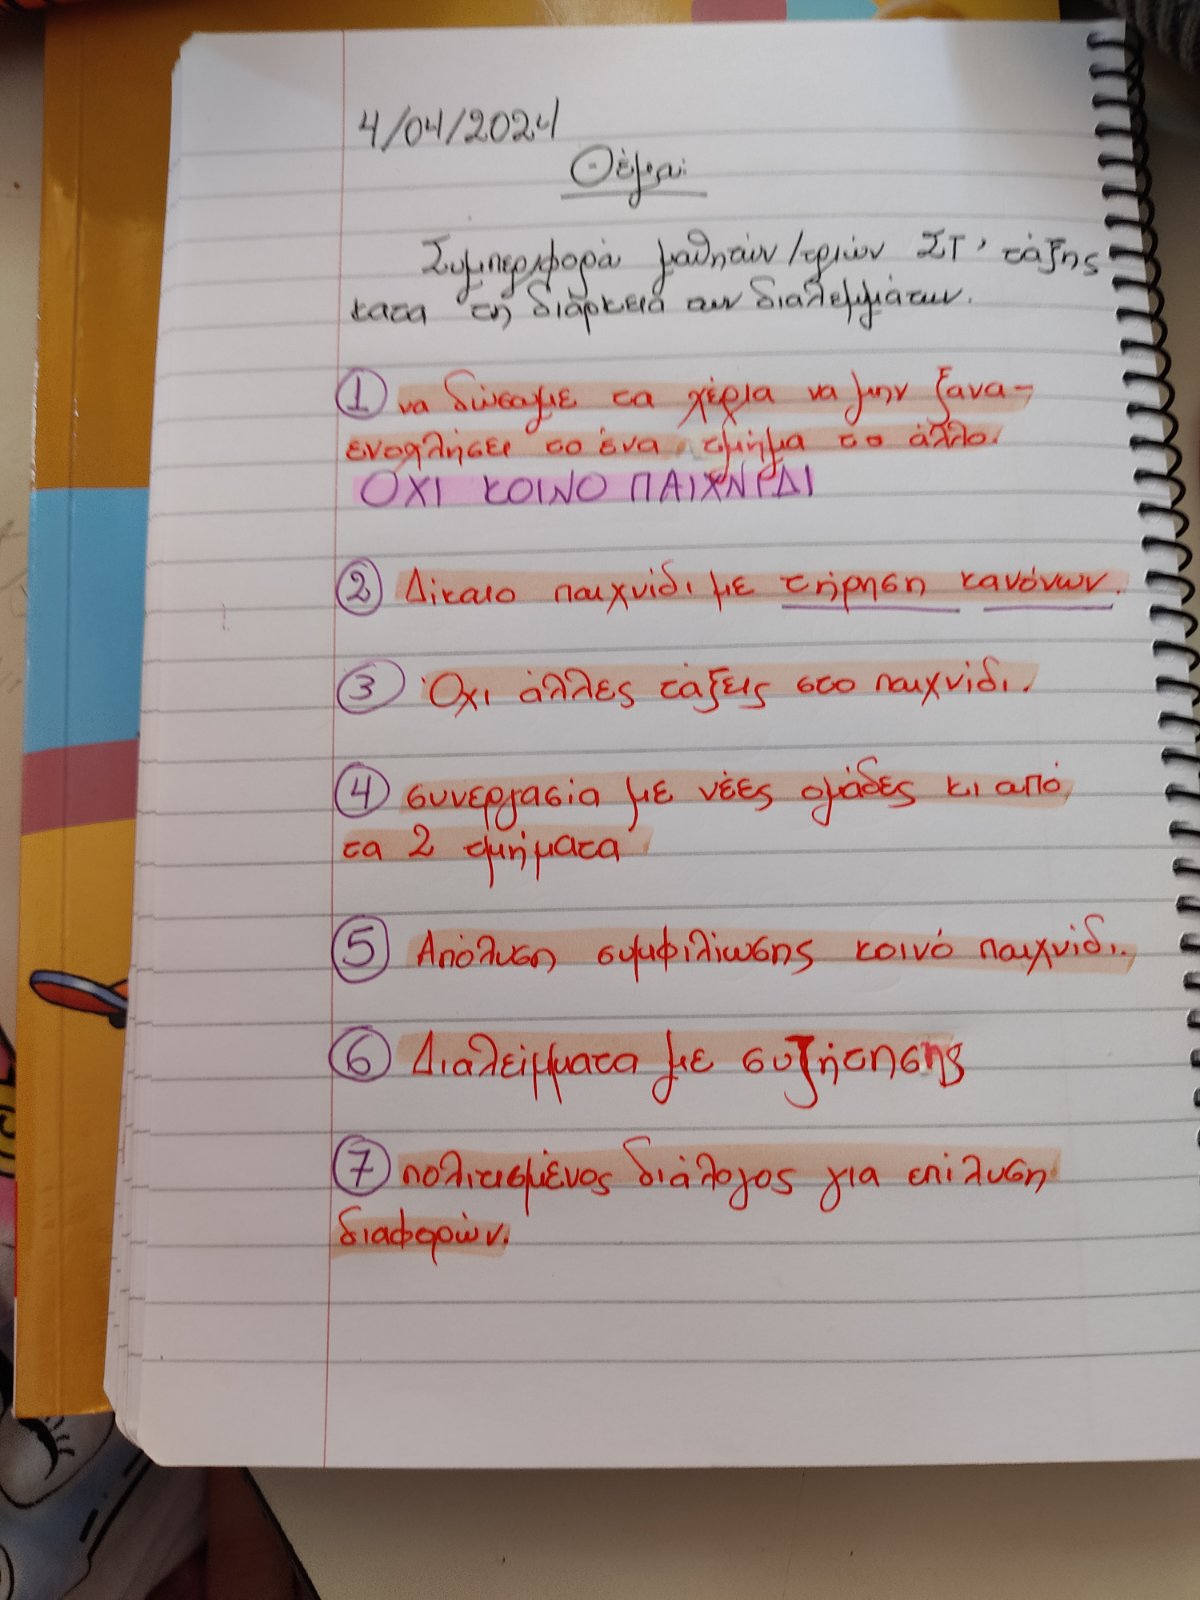 4/04/2024
Θέμα:
Συμπεριφορά μαθητών/τριών ΣΤ' τάξης
κατα τη διάρκεια των διαλειμμάτων.
1 να δώσουμε τα χέρια να μην ξανα-
ενοχλήσει το ένα τμήμα το άλλο.
ΟΧΙ ΚΟΙΝΟ ΠΑΙΧΝΙΔΙ
2 Δίκαιο παιχνίδι με τήρηση κανόνων.
3 Όχι άλλες τάξεις στο παιχνίδι.
4 συνεργασία με νέες ομάδες κι από
τα 2 τμήματα
5 Απόλυση συμφιλίωσης κοινό παιχνίδι.
6 Διαλείμματα με συζήτησης
7 πολιτισμένος διάλογος για επίλυση
διαφορών.